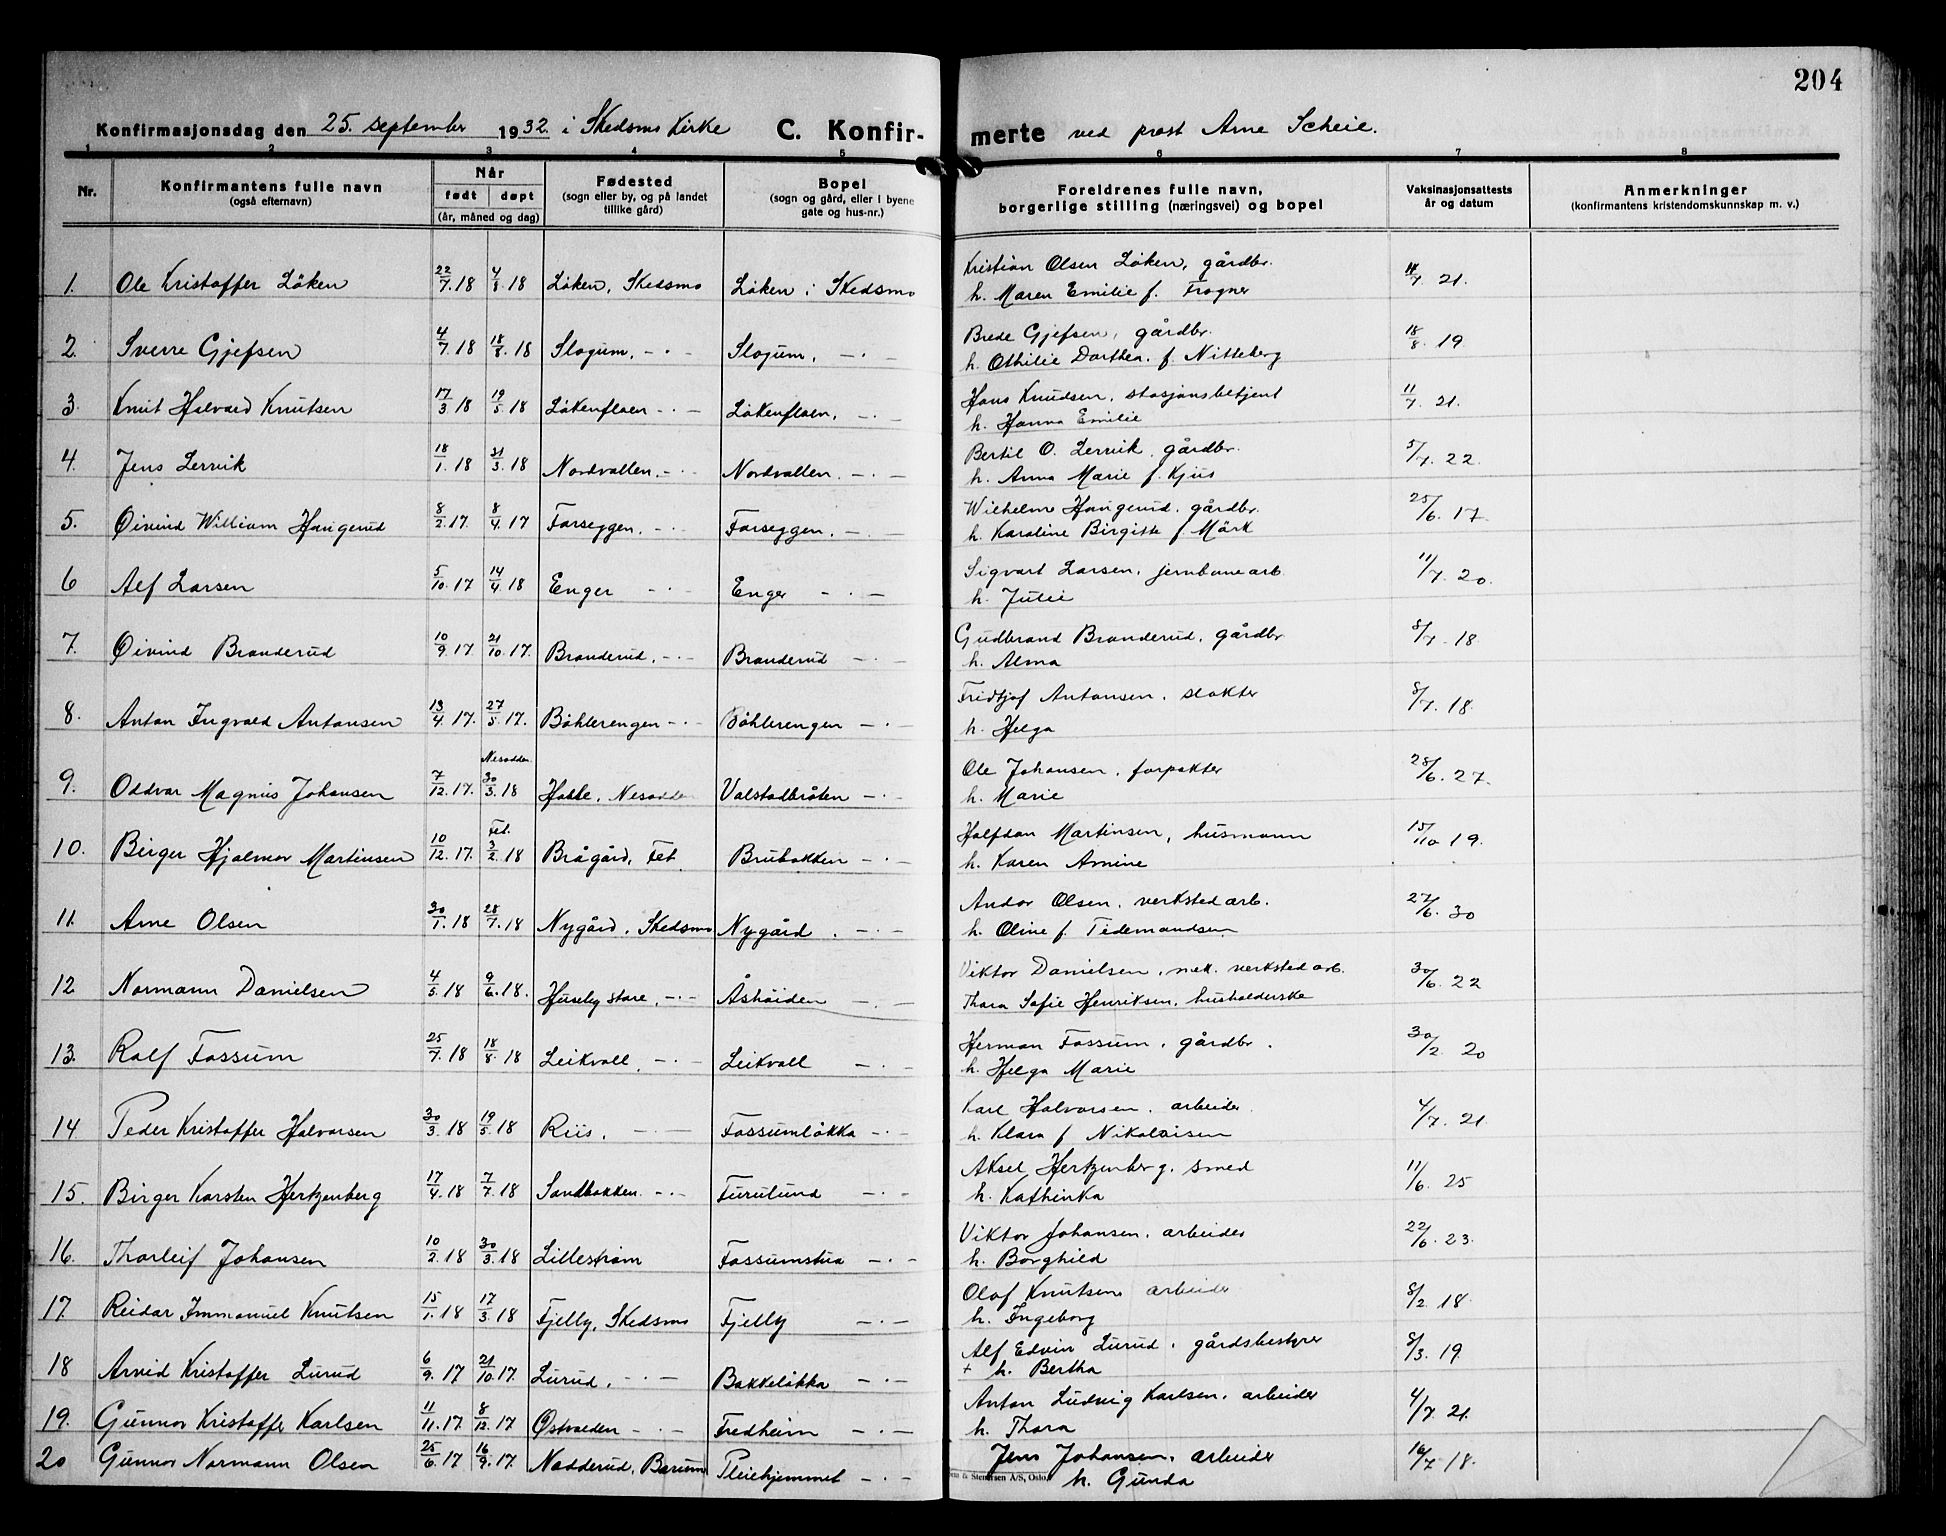 204
Konfirmasjonsdag den 25. september 1932. i Skedsmo Kirke C. Konfir- merte ved prost Arne Scheie.
1 2 3 4 5 6 7 8
Nr. Konfirmantens fulle navn (også efternavn) Når født døpt (år, måned og dag) Fødested (sogn eller by, og på landet tillike gård) Bopel (sogn og gård, eller i byene gate og hus-nr.) Foreldrenes fulle navn, borgerlige stilling (næringsvei) og bopel Vaksinasjonsattests år og datum Anmerkninger (konfirmantens kristendomskunnskap m. v.)
1. Ole Kristoffer Löken 22/7. 18 4/8. 18 Löken, Skedsmo Löken i Skedsmo Kristian Olsen Löken, gårdbr. 21.
h. Maren Emilie f. Frogner
2. Sverre Gjefsen 4/7. 18 18/8. 18 Slogum. - · - Slogum. - · - Brede Gjefsen, gårdbr. 18/8. 19
h. Othilie Dorthea. f. Nitteberg
3. Knut Halvard Knutsen 17/3. 18 19/5. 18 Lökenflaen - · - Lökenflaen. - · - Hans Knudsen. stasjonsbetjent 11/7. 21.
h. Hanna Emilie
4. Jens Lervik 18/1. 18 31/3. 18 Nordvallen. - · - Nordvallen. - · - Bertil O. Lervik. gårdbr. 5/7. 22.
h. Anna Marie f. Kjus
5. Öivind William Haugerud 8/2. 17. 8/4. 17 Farseggen. - · - Farseggen. - · - Wilhelm Haugerud. gårdbr. 25/6. 17.
h. Karoline Birgitte f. Mörk
6 Alf Larsen 5/10. 17 14/4. 18 Enger - · - Enger - · - Sigvart Larsen. jernbanearb. 11/7. 20.
h. Julie
7. Öivind Branderud 10/9. 17. 21/10. 17. Branderud. - · - Branderud - · - Gudbrand Branderud, gårdbr 8/7. 18
h. Alma
8. Anton Ingvald Antonsen 13/4. 17. 27/5. 17. Böhlerengen - · - Böhlerengen - · - Fridtjof Antonsen. slakter 8/7. 18.
h. Helga
9. Oddvar Magnus Johansen 7/12. 17. Nesodden 30/3. 18 Nesodden Valstadbråten - · - Ole Johansen, forpakter 28/6. 27.
h. Marie
10. Birger Hjalmar Martinsen 10/12. 17. Fet. 3/2. 18 Brågård, Fet Brubakken - · - Halfdan Martinsen, husmann 15/10 19.
h. Karen Amine
11. Arne Olsen 30/1. 18 28/7. 18 Nygård. Skedsmo Nygård. - · - Andor Olsen. verksted arb. 27/6. 30
h. Oline f. Tidemandsen
12 Normann Danielsen 4/5. 18 9/6. 18. Huseby store. - · - Åshöiden - · - Viktor Danielsen. mek. verksted arb. 30/6. 22
Thora Sofie Henriksen. husholderske
13. Rolf Fossum 25/7. 18 18/8. 18 Leikvoll. - · - Leikvoll - · - Herman Fossum. gårdbr. 30/2. 20
h. Helga Marie
14 Peder Kristoffer Halvorsen 30/3. 18 19/5. 18 Riis. - · - Fossumlökka - · - Karl Halvorsen. arbeider 4/7. 21.
h. Klara f Nikolaisen
15. Birger Karsten Hertzenberg 17/4. 18 7/7. 18 Sandbakken. - · - Furulund - · - Aksel Hertzenberg. smed 11/6. 25
h. Kathinka
16. Thorleif Johansen 10/2. 18 30/3. 18 Lilleström Fossumstua - · - Viktor Johansen, arbeider 22/6. 23.
h. Borghild
17. Reidar Immanuel Knutsen 15/1. 18 17/3. 18 Fjelly, Skedsmo Fjelly - · - Olaf Knutsen arbeider 8/2. 18.
h. Ingeborg
18 Arvid Kristoffer Lurud 6/9. 17 21/10. 17. Lurud. - · - Bakkelökka - · - Alf Edvin Lurud. gårdsbestyrer 8/3. 19.
+ h. Bertha
19. Gunnar Kristoffer Karlsen 11/11. 17. 8/12. 17 Östvolden - · - Fredheim - · - Anton Ludvig Karlsen. arbeider 4/7. 21.
h. Thora
20 Gunnar Normann Olsen 25/6. 17 16/9. 17. Nadderud, Bærum Pleiehjemmet - · - Jens Johansen. arbeider 16/7 18.
h. Gunda
& Stenersen A/S, Oslo.